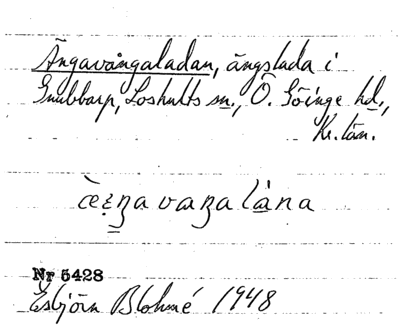 Ängavångaladan, ängslada i
Gnubbarp, Loshults sn., Ö. Göinge hd.,
Kr. län.
Nr 5428
Esbjörn Blohmé 1948